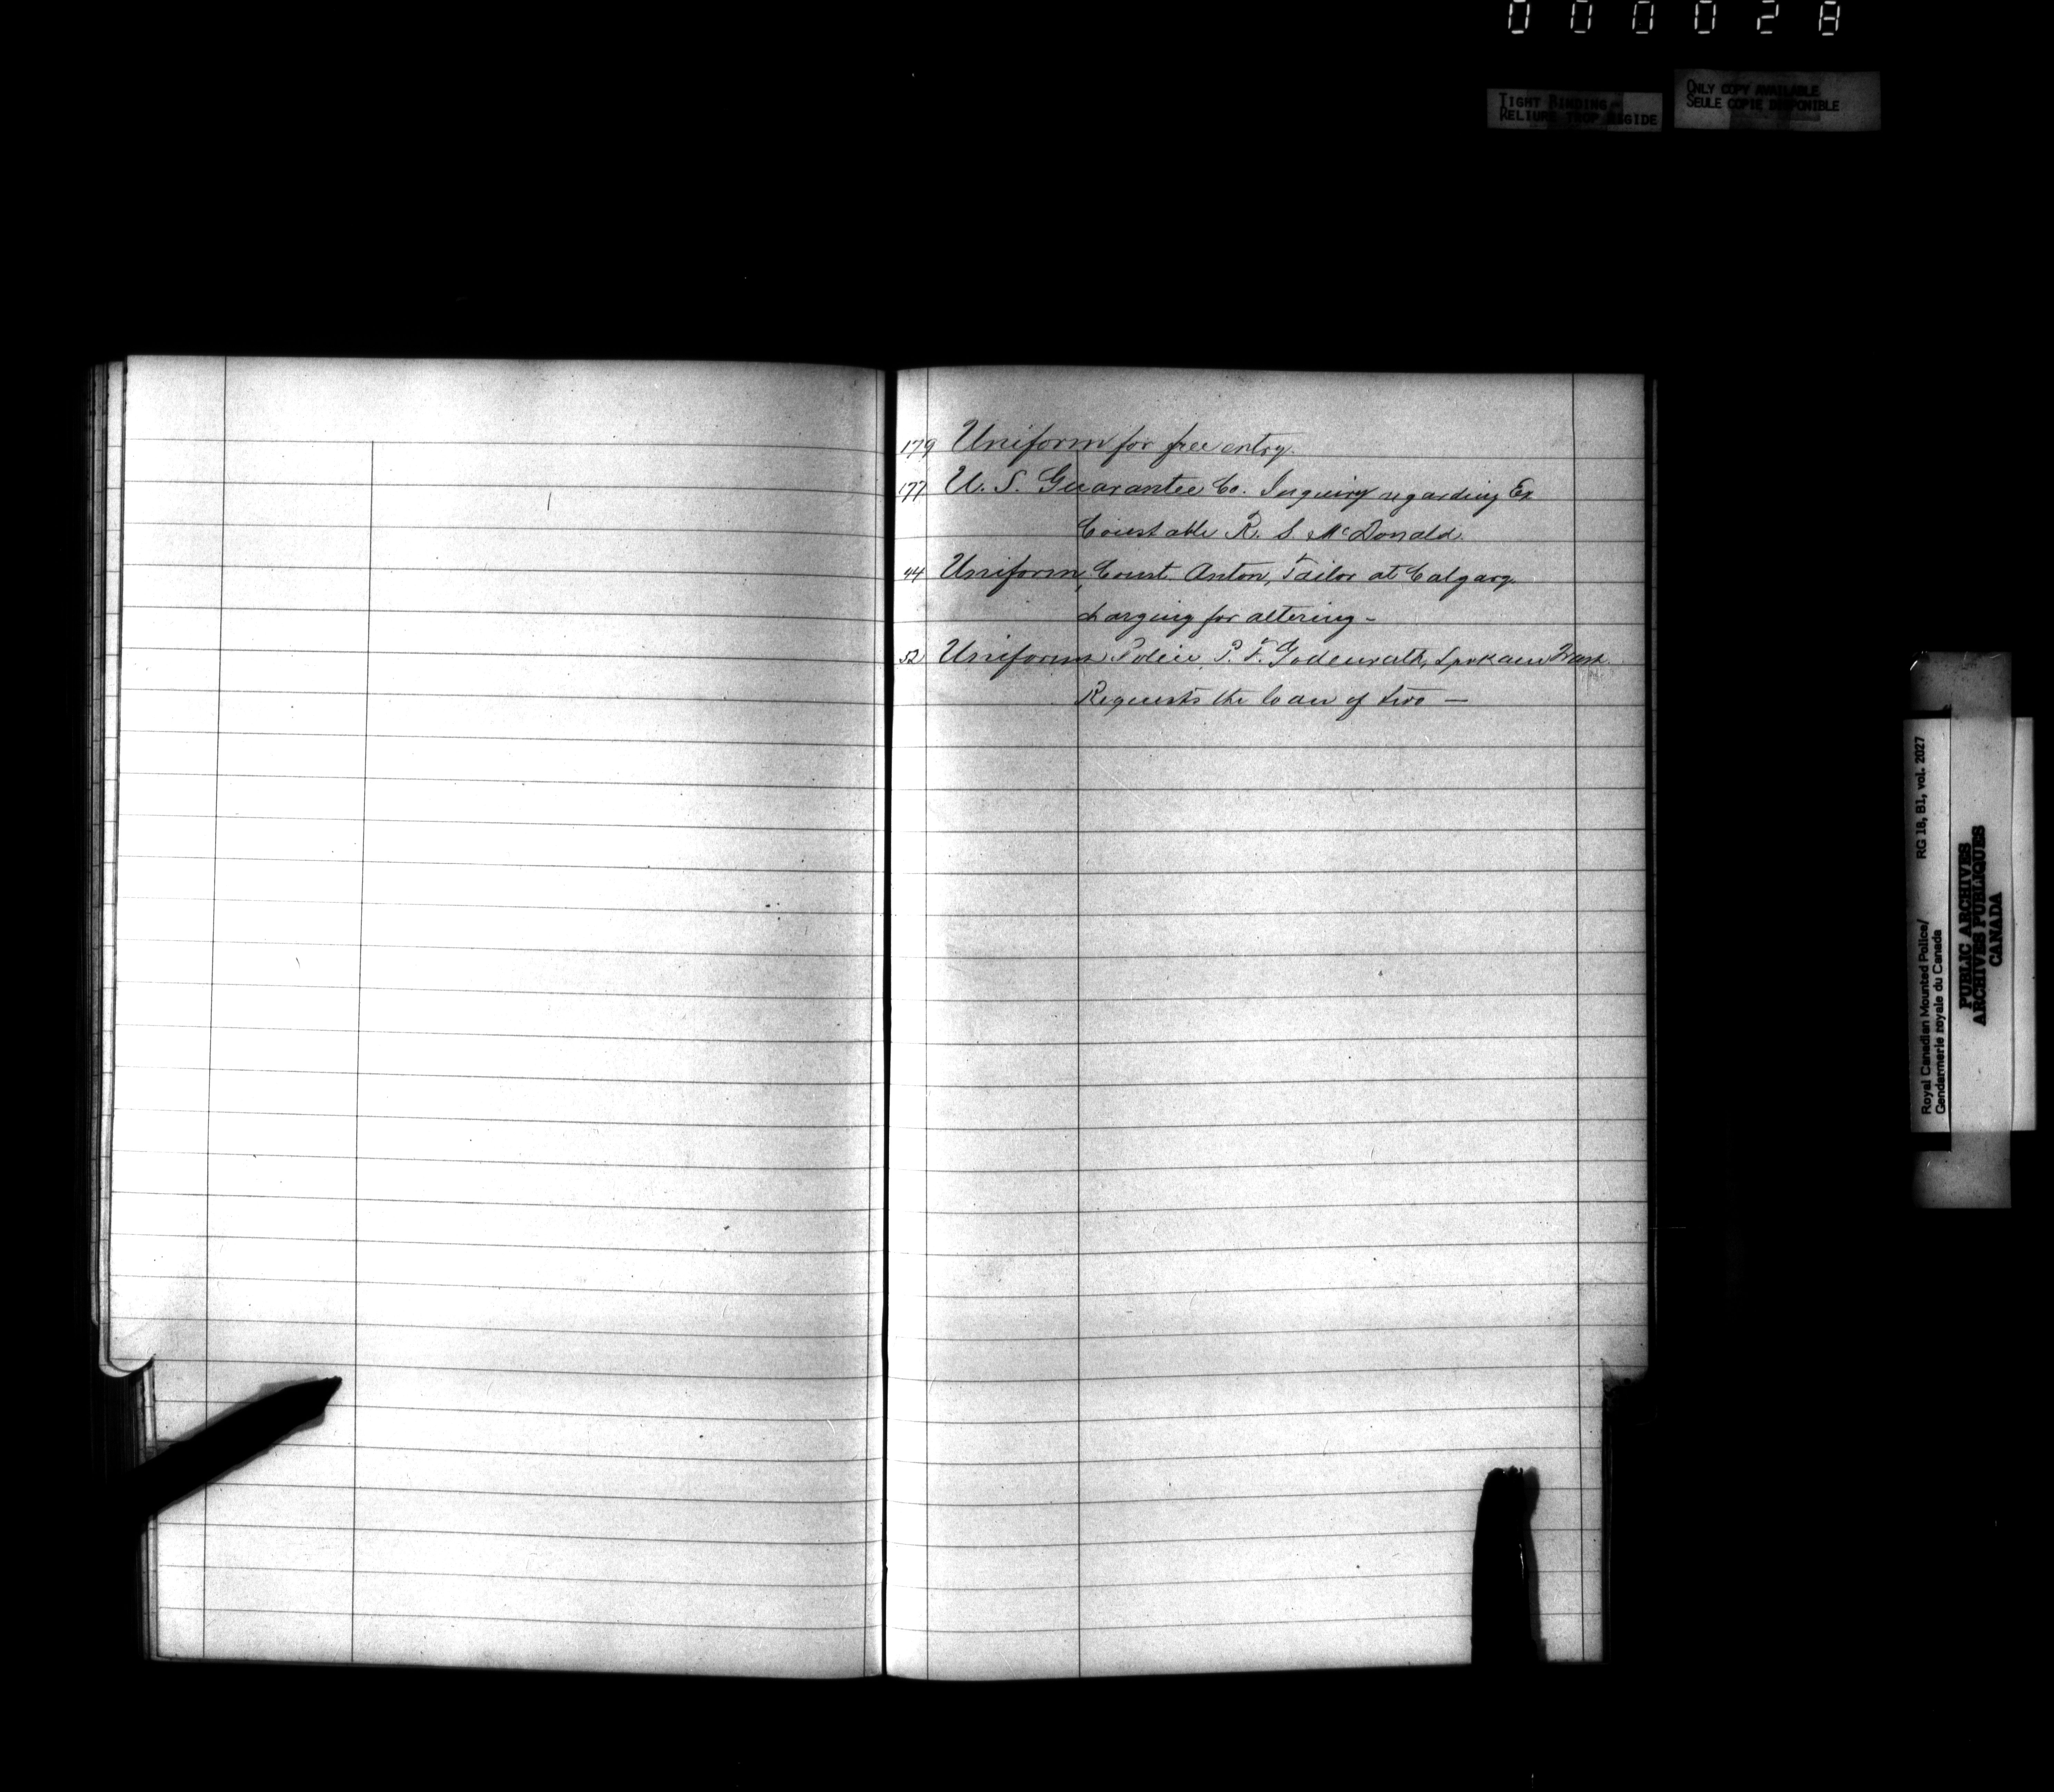 000028
TIGHT BINDING
RELIURE TROP RIGIDE
ONLY COPY AVAILABLE
SEULE COPIE DISPONIBLE
179 Uniform for free entry.
177 U. S. Guarantee Co. Inquiry regarding Ex
Constable R. S. McDonald.
44 Uniform, Const. Anton, Tailor at Calgary
charging for altering -
52 Uniforms Police, P. F. Godenrath, Spokane Wash.
Requests the loan of two —
Royal Canadian Mounted Police/ RG 18, B1, vol. 2027
Gendarmerie royale du Canada
PUBLIC ARCHIVES
ARCHIVES PUBLIQUES
CANADA